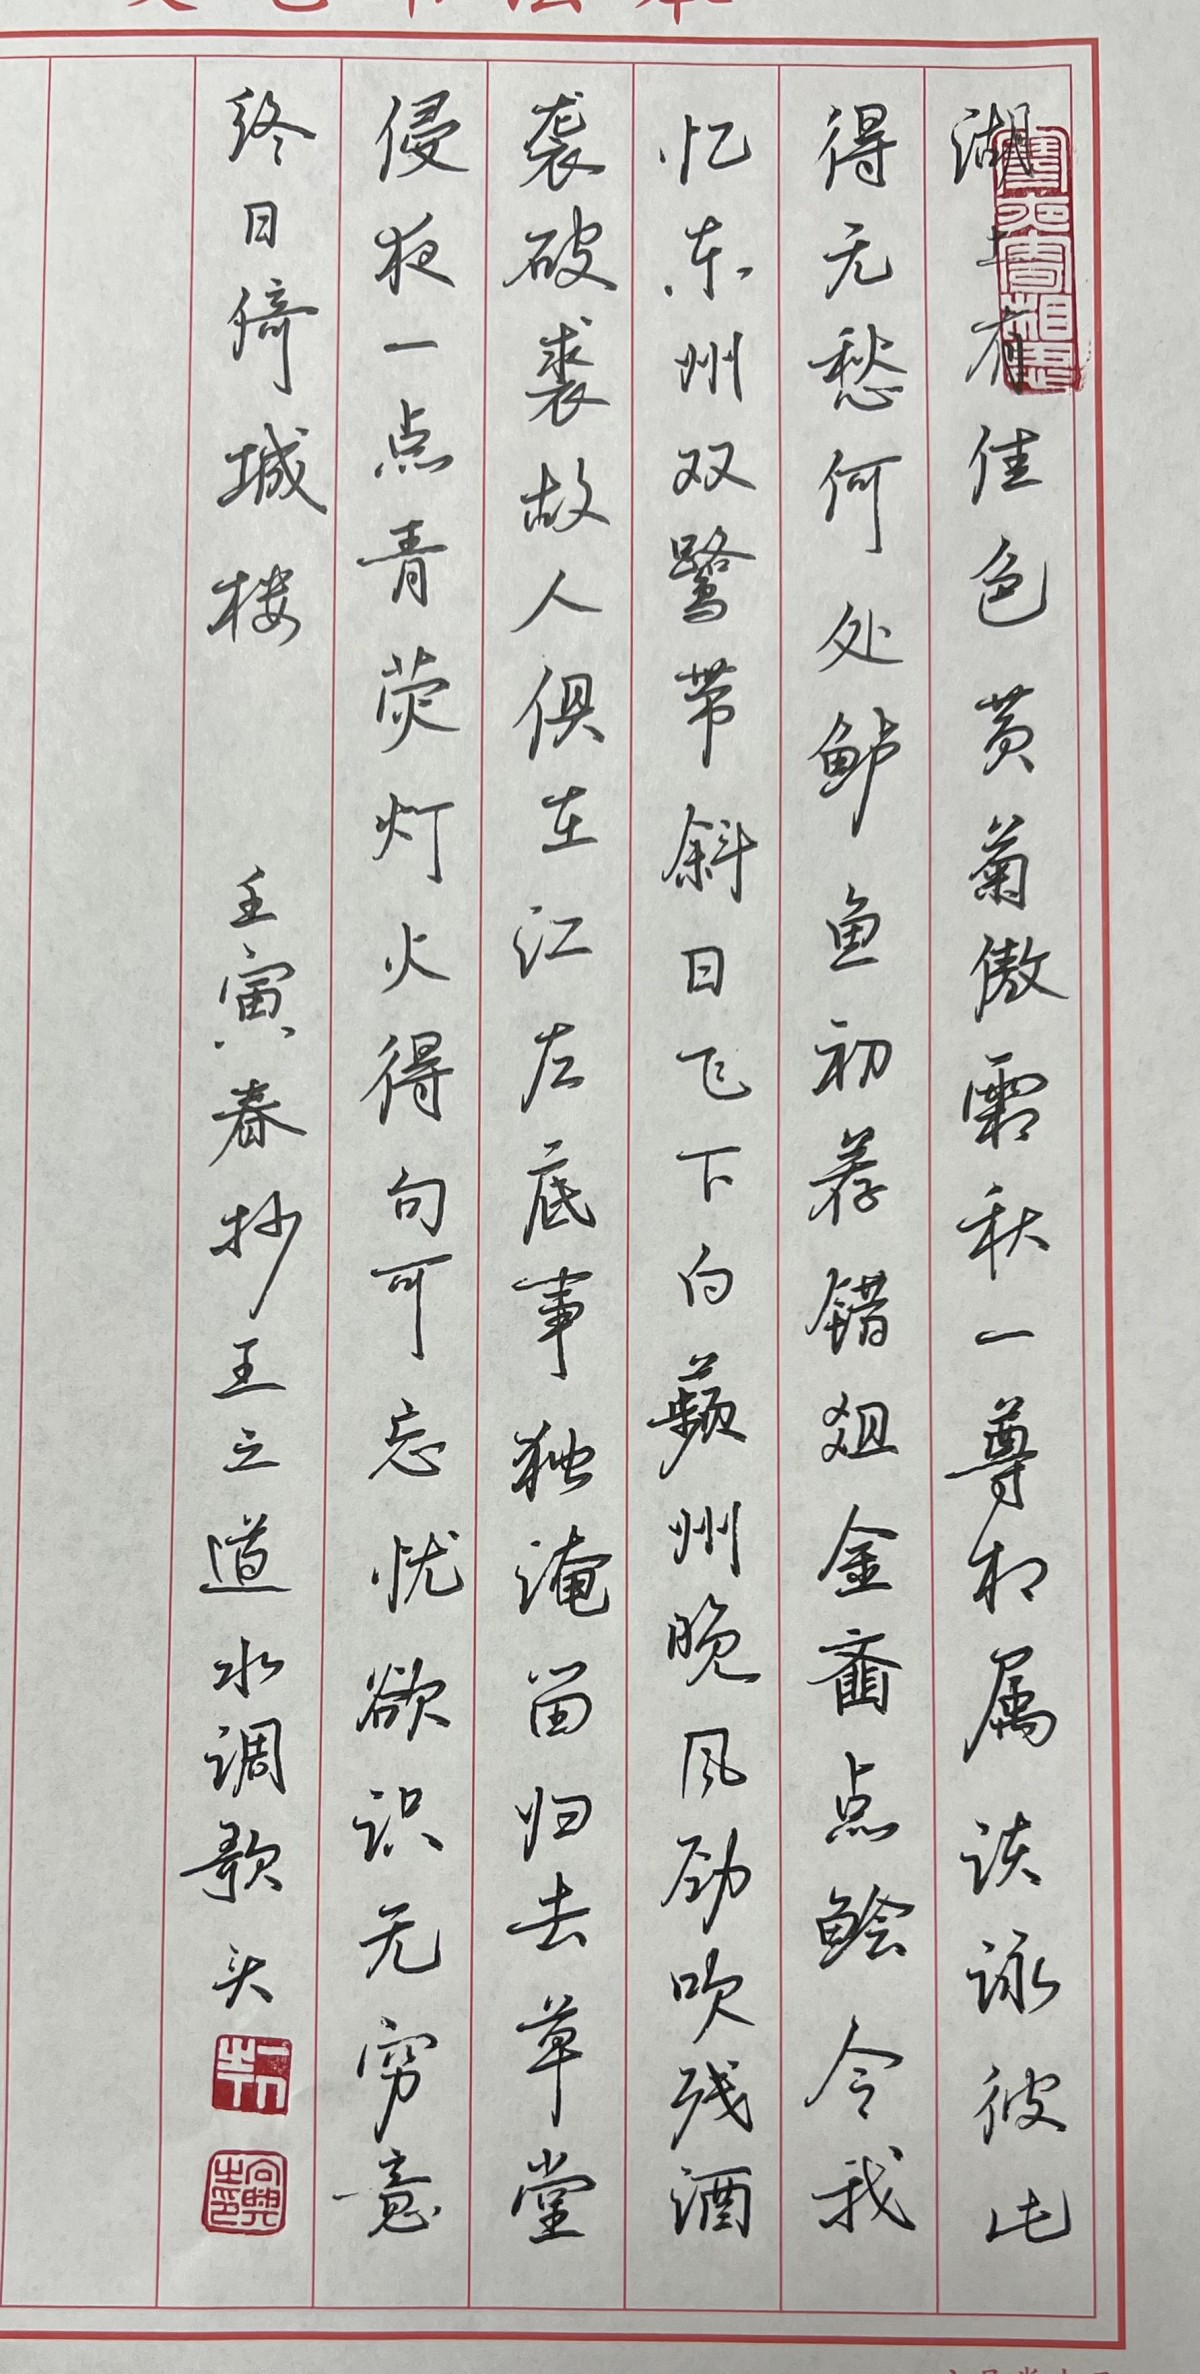 湖上有佳色黄菊傲霜秋一尊相属谈咏彼此
得无愁何处鲈鱼初荐错俎金齑点鲙令我
忆东州双鹭带斜日飞下白蘋州晚风劲吹残酒
袭破裘故人俱在江左底事独淹留归去草堂
侵夜一点青荧灯火得句可忘忧欲识无穷意
终日倚城楼 壬寅春抄王之道水调歌头